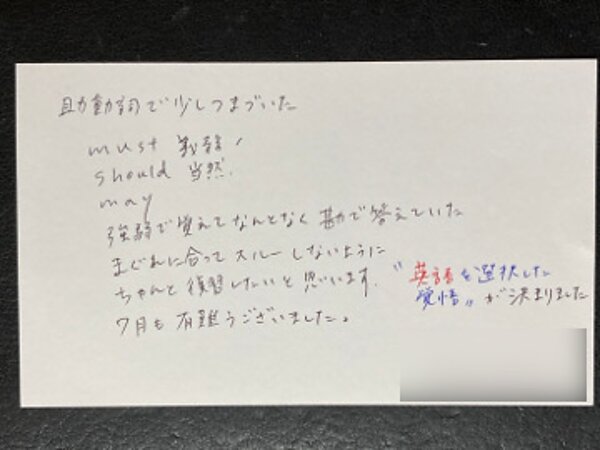 助動詞で少しつまづいた
must 義務、
should 当然、
may
強弱で覚えてなんとなく勘で答えていた
まぐれに合ってスルーしないように
ちゃんと復習したいと思います。
"英語を選択した
覚悟"が決まりました
7月も有難うございました。